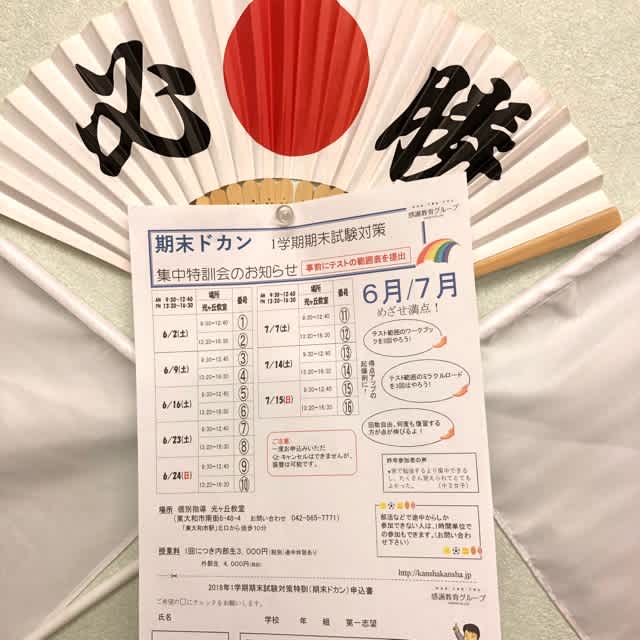 必勝
感謝教育グループ
期末ドカン 1学期期末試験対策
集中特訓会のお知らせ 事前にテストの範囲表を提出
6月/7月
めざせ満点!
AM 9:30-12:40
PM 13:20-16:30
場所
光ヶ丘教室
番号
6/2(土)
9:30~12:40 ①
13:20~16:30 ②
6/9(土)
9:30~12:40 ③
13:20~16:30 ④
6/16(土)
9:30~12:40 ⑤
13:20~16:30 ⑥
6/23(土)
9:30~12:40 ⑦
13:20~16:30 ⑧
6/24(日)
9:30~12:40 ⑨
13:20~16:30 ⑩
AM 9:30-12:40
PM 13:20-16:30
場所
光ヶ丘教室
番号
7/7(土)
9:30~12:40 ⑪
13:20~16:30 ⑫
7/14(土)
9:30~12:40 ⑬
13:20~16:30 ⑭
7/15(日)
9:30~12:40 ⑮
13:20~16:30 ⑯
得点アップの
起爆剤に!
テスト範囲のワークブッ
クを3回やろう!
テスト範囲のミラクルロード
を3回はやろう!
回数自由。何度も復習する
方が点が伸びるよ!
ご注意
一度お申込みいただ
くとキャンセルはできませんが、
振替は可能です。
昨年参加者の声
●家で勉強するより集中できる
し、たくさん覚えられてとても
よかった。 (中3女子)
部活などで途中からしか
参加できない人は、1時間単位で
の参加もできます。(お問い合わ
せ下さい)
場所 個別指導 光ヶ丘教室
(東大和市南街6-48-4 お問い合わせ 042-565-7771)
(東大和市駅)北口から徒歩10分
授業料 1回につき内部生3,000円(税別)途中休憩あり
外部生 4,000円(税別)
http://kanshakansha.jp
2018年1学期期末試験対策特訓(期末ドカン)申込書
感謝教育グループ
ご希望の□にチェックをお願いします。
氏名 学校 年 組 第一志望